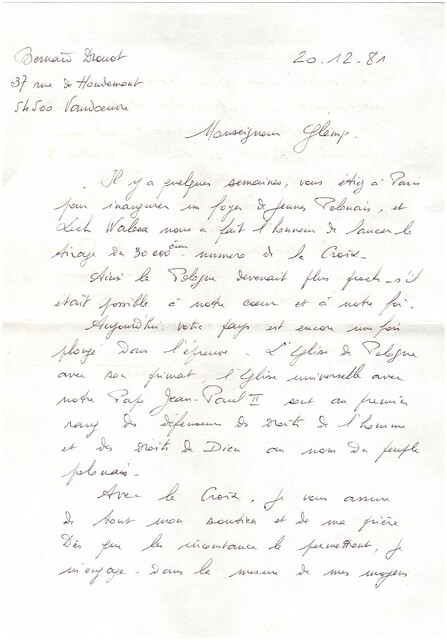 Bernard Drouot
20.12.81
37 rue de Houdemont
54500 Vandoeuvre
Monseigneur Glemp.
Il y a quelques semaines, vous étiez à Paris
pour inaugurer un foyer de jeunes Polonais, et
Lech Walesa nous a fait l'honneur de lancer le
tirage du 30 000ème numero de la Croix.
Ainsi la Pologne devenait plus proche s'il
etait possible à notre coeur et à notre foi.
Aujourd'hui votre pays est encore une fois
plongé dans l'épreuve. L'Eglise de Pologne
avec son primat, l'Eglise universelle avec
notre Pape Jean-Paul II sont au premier
rang des défenseurs des droits de l'homme
et des droits de Dieu au nom du peuple
polonais.
Avec la Croix, je vous assure
de tout mon soutien et de ma prière
Dès que les circonstance le permettront, je
m'engage, dans la mesure de mes moyens